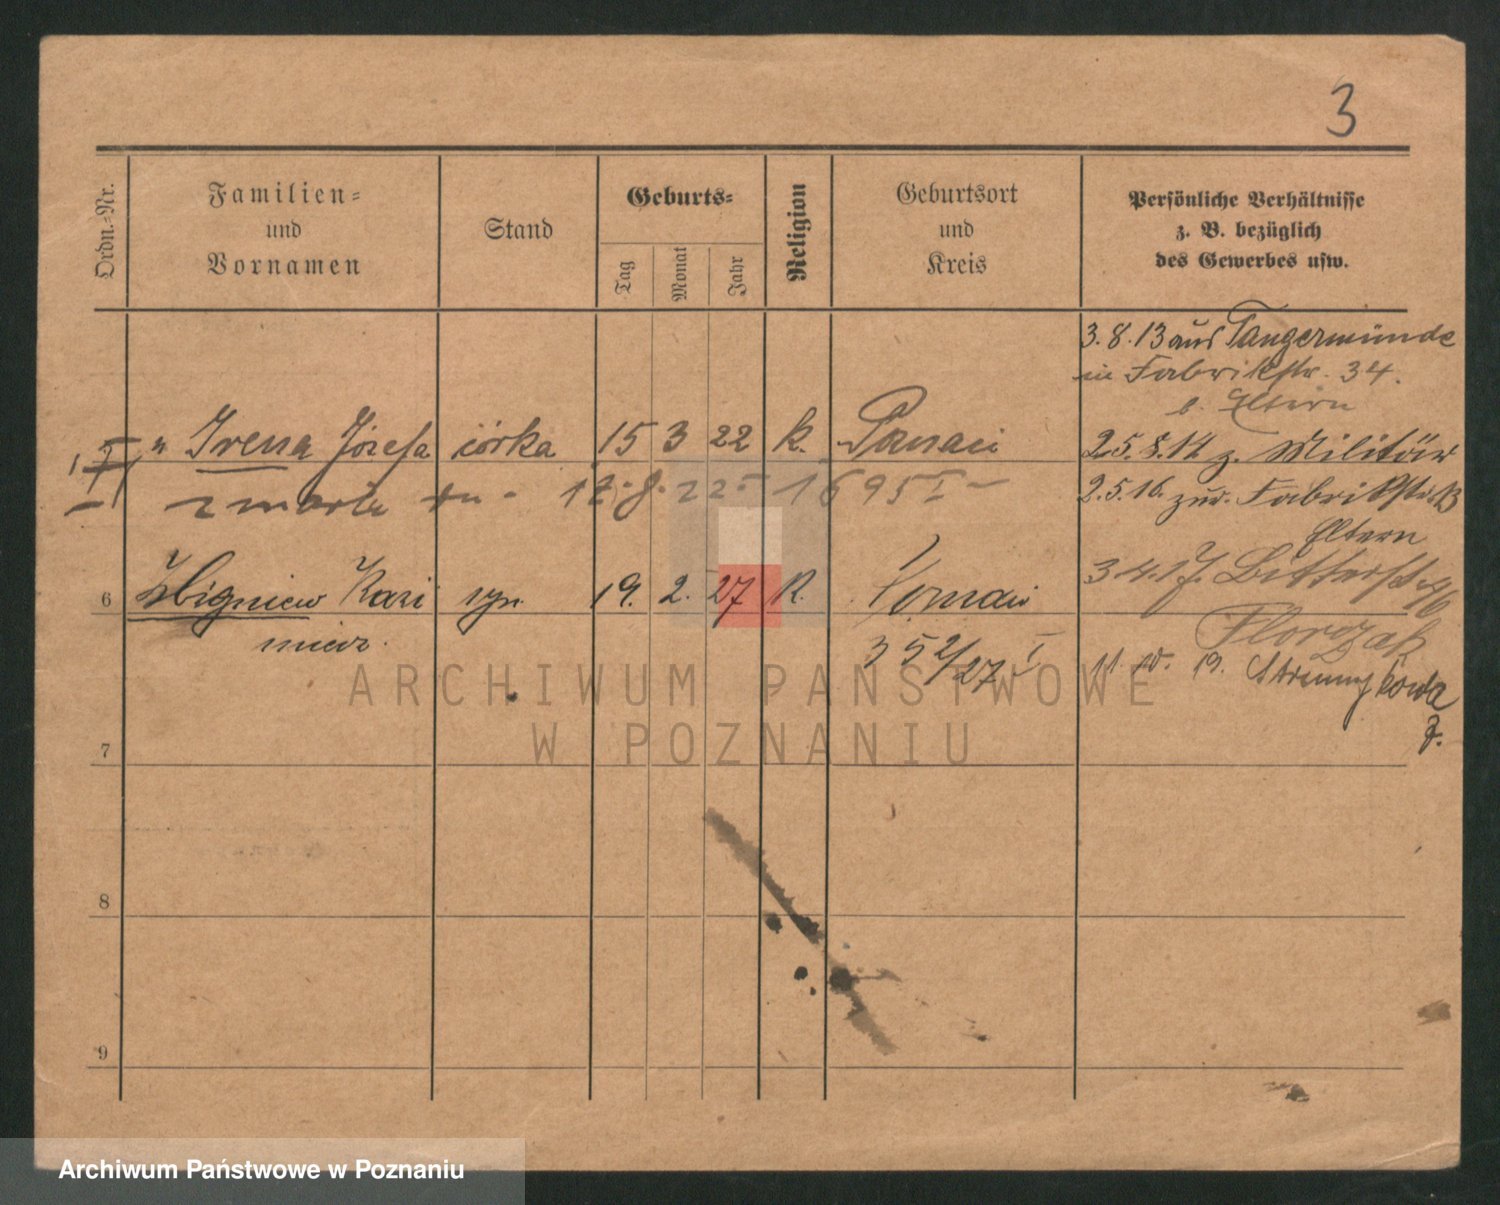 3
Ordn.-Nr.
Familien-
und
Vornamen
Stand
Geburts-
Tag
Monat
Jahr
Religion
Geburtsort
und
Kreis
Persönliche Verhältnisse
z. B. bezüglich
des Gewerbes usw.
3.8.13 aus Tangermünde
in Fabrikstr. 34.
b. Eltern
" Irena Józefa córka 15 3 22 k. Poznań
25.8.14 z. Militär
zmarła dn - 17.8.22 - 1695 I -
2.5.16. zur. Fabrikstr.
Eltern
6 Zbigniew Kazi syn 19. 2. 27 R. Poznań
mierz.
3.4.17. Bitterst.
Florczak
352/27 I
11. 10. 19. Strumykowa
7.
7
8
9
ARCHIWUM PAŃSTWOWE
W POZNANIU
Archiwum Państwowe w Poznaniu